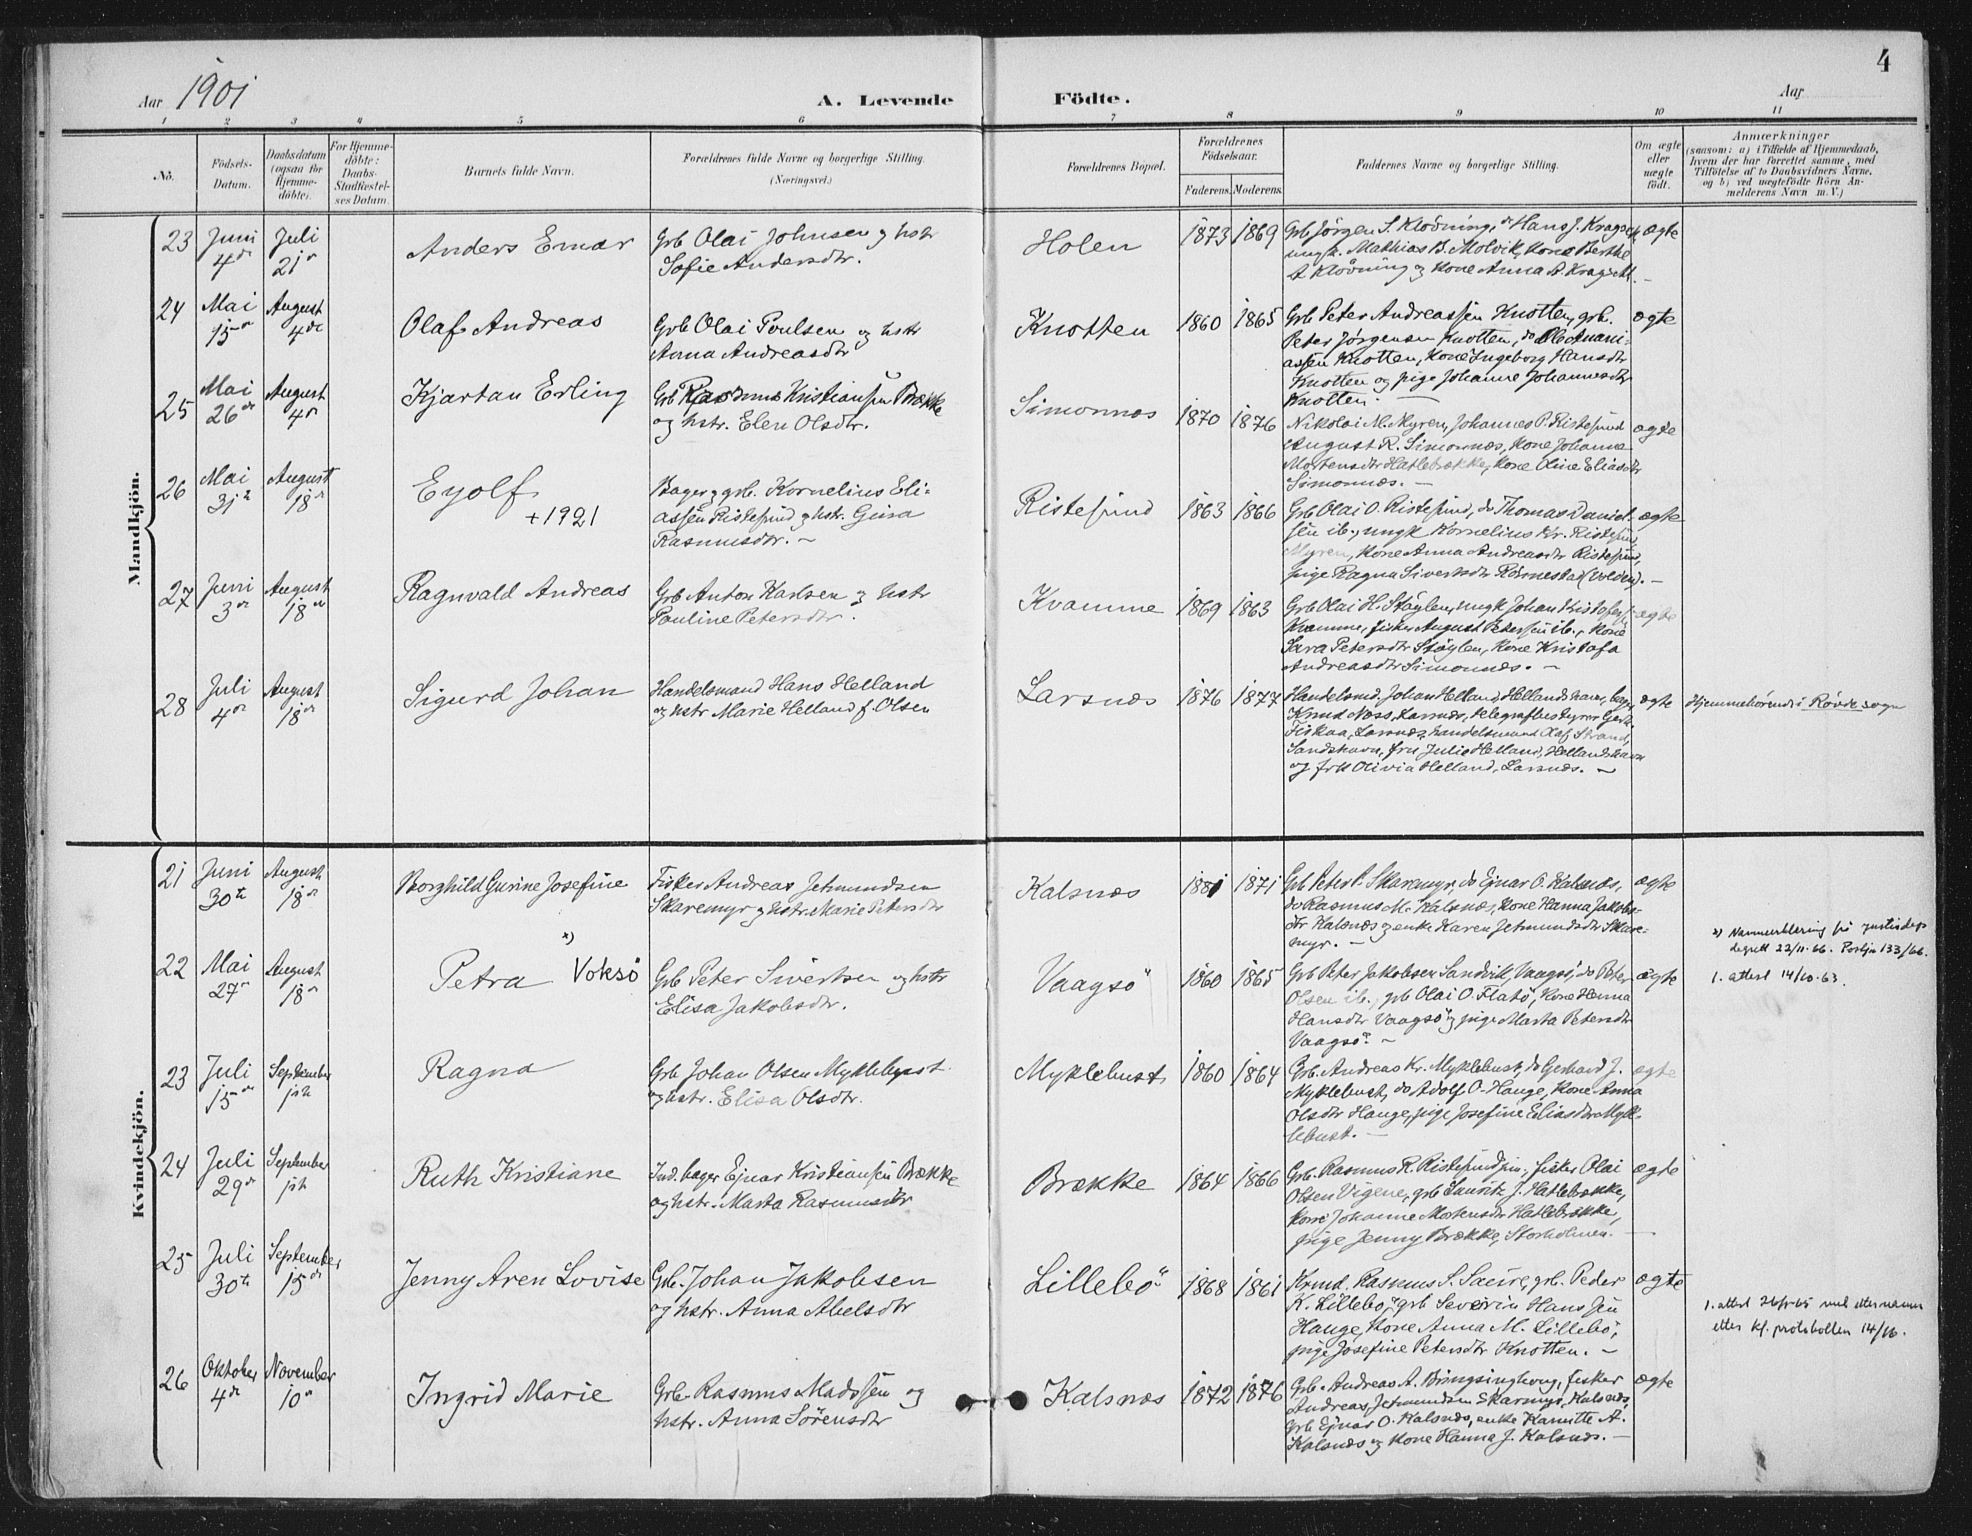 4
Aar 1901 A. Levende Födte. Aar
1 2 3 4 5 6 7 8 9 10 11
No. Födsels-Datum. Daabsdatum (ogsaa for Hjemme-döbte). For Hjemme-döbte: Daabs-Stadfæstel-ses Datum. Barnets fulde Navn. Forældrenes fulde Navne og borgerlige Stilling. (Næringsvei.) Forældrenes Bopæl. Forældrenes Födselsaar. Faderens. Moderens. Faddernes Navne og borgerlige Stilling. Om ægte eller uægte født. Anmærkninger
(saasom: a) i Tilfælde af Hjemmedaab,
hvem der har forrettet samme, med
Tilföielse af to Daabsvidners Navne,
og b) ved uægtefödte Börn An-
melderens Navn m. V.)
Mandkjön.
23 Juni 4de Juli 21de Anders Einar Grb Olai Johnsen og hstr Sofie Andersdtr. Holen 1873 1869 Grb Jørgen S. Kløvning, do Hans J. Kragset,
ungk. Mathias B. Molvik, Kone Berthe
A Kløvning og Kone Anna A. Kragseth. ægte
24 Mai 15de August 4de Olaf Andreas Grb Olai Poulsen og hstr Anna Andreasdtr Knotten 1860 1865 Grb Peter Andreassen Knotten, grb.
Peter Jørgensen Knotten, do Ole Anani-
assen Knotten, Kone Ingeborg Hansdtr
Knotten og pige Johanne Johannesdtr
Knotten. ægte
25 Mai 26de August 4de Kjartan Erling Grb Rasmus Kristiansen Brække og hstr. Elen Olsdtr. Simonnæs 1870 1876 Nikolai M. Myren, Johannes P. Ristesund
August R. Simonnæs, Kone Johanne
Mortensdtr Hatlebrække, Kone Oline Eliasdtr
Simonnæs. ægte
26 Mai 31te August 18de Eyolf +1921 Bager og grb. Kornelius Eli-
assen Ristesund og hstr. Gjura
Rasmusdtr. Ristesund 1863 1866 Grb Olai O. Ristesund, do Thomas Daniel-
sen ib., ungk Kornelius Kr. Ristesund,
Myren, Kone Anna Andreasdtr Ristesund,
pige Ragna Sivertsdtr Rørnestad (Volden). ægte
27 Juni 3de August 18de Ragnvald Andreas Grb Anton Karlsen og hstr Pauline Petersdtr. Kvamme 1869 1863 Grb Olai H. Støylen, ungk Johan Kristofers.
Kvamme, fisker August Petersen ib., Kone
Sara Petersdtr Støylen, Kone Kristofa
Andreasdtr Simonnæs. ægte
28 Juli 4de August 18de Sigurd Johan Handelsmand Hans Helland og hstr Marie Helland f. Olsen Larsnæs 1876 1877 Handelsmd. Johan Helland, Hellandshavn, bager
Knud Næss, Larsnæs, telegrafbestyrer Gert.
Fiskaa, Larsnæs, handelsmand Olaf Strand,
Sandshavn, fru Julie Helland, Hellandshavn
og frk Olivia Helland, Larsnæs. ægte Hjemmehørende i Røvde sogn
Kvindekjön.
21 Juni 30te August 18de Borghild Gurine Josefine Fisker Andreas Jetmundsen Skaremyr og hstr. Marie Petersdtr Kalsnæs 1881 1871 Grb Peter P. Skaremyr, do Ejnar O. Kalsnæs,
do Rasmus M. Kalsnæs, Kone Hanna Jakobs-
dtr Kalsnæs og enke Karen Jetmundsdtr Skare-
myr. ægte
22 Mai 27de August 18de Petra x) Voksö Grb Peter Sivertsen og hstr Elisa Jakobsdtr. Vaagsö 1860 1865 Grb Peter Jakobsen Sandvik, Vaagsö, do Peter
Olsen ib., grb Olai O. Flatö, Kone Hanna
Hansdtr Vaagsö og pige Marta Petersdtr
Vaagsö. ægte x) Navneendring få justisdep
degrett 22/11-66. Postjn 133/66.
1. attest 14/10-63.
23 Juli 15de September 1ste Ragna Grb Johan Olsen Myklebust og hstr. Elisa Olsdtr. Myklebust 1860 1864 Grb. Andreas Kr. Myklebust, do Gerhard J.
Myklebust, do Adolf O. Hauge, Kone Anna
Olsdtr Hauge, pige Josefine Eliasdtr Myk-
lebust. ægte
24 Juli 29de September 1ste Ruth Kristiane Ind. bager Ejnar Kristiansen Brække og hstr. Marta Rasmusdtr Brække 1864 1866 Grb. Rasmus R. Ristesund jun., fisker Olai
Olsen Vigene, grb Lauritz J. Hatlebrække,
Kone Johanne Mortensdtr Hatlebrække,
pige Jenny Brække, Storholmen. ægte
25 Juli 30te September 15de Jenny Aren Lovise Grb. Johan Jakobsen og hstr. Anna Abelsdtr Lillebö 1868 1861 Krmd. Rasmus S. Saure, grb. Peder
K. Lillebo, grb Severin Hanssen
Hauge, Kone Anna M. Lillebö,
pige Josefine Petersdtr Knotten. ægte 1. attest 26/5-65 med etternamn
etter kl. protokollen 14/16.
26 Oktober 4de November 10de Ingrid Marie Grb. Rasmus Madssen og hstr. Anna Sörensdtr Kalsnæs 1872 1876 Grb. Andreas A. Bringsinghaug, fisker
Andreas Jetmundsen Skaremyr, Kalsnæs,
grb Ejnar O. Kalsnæs, enke Kamitte A.
Kalsnæs og Kone Hanna J. Kalsnæs. ægte